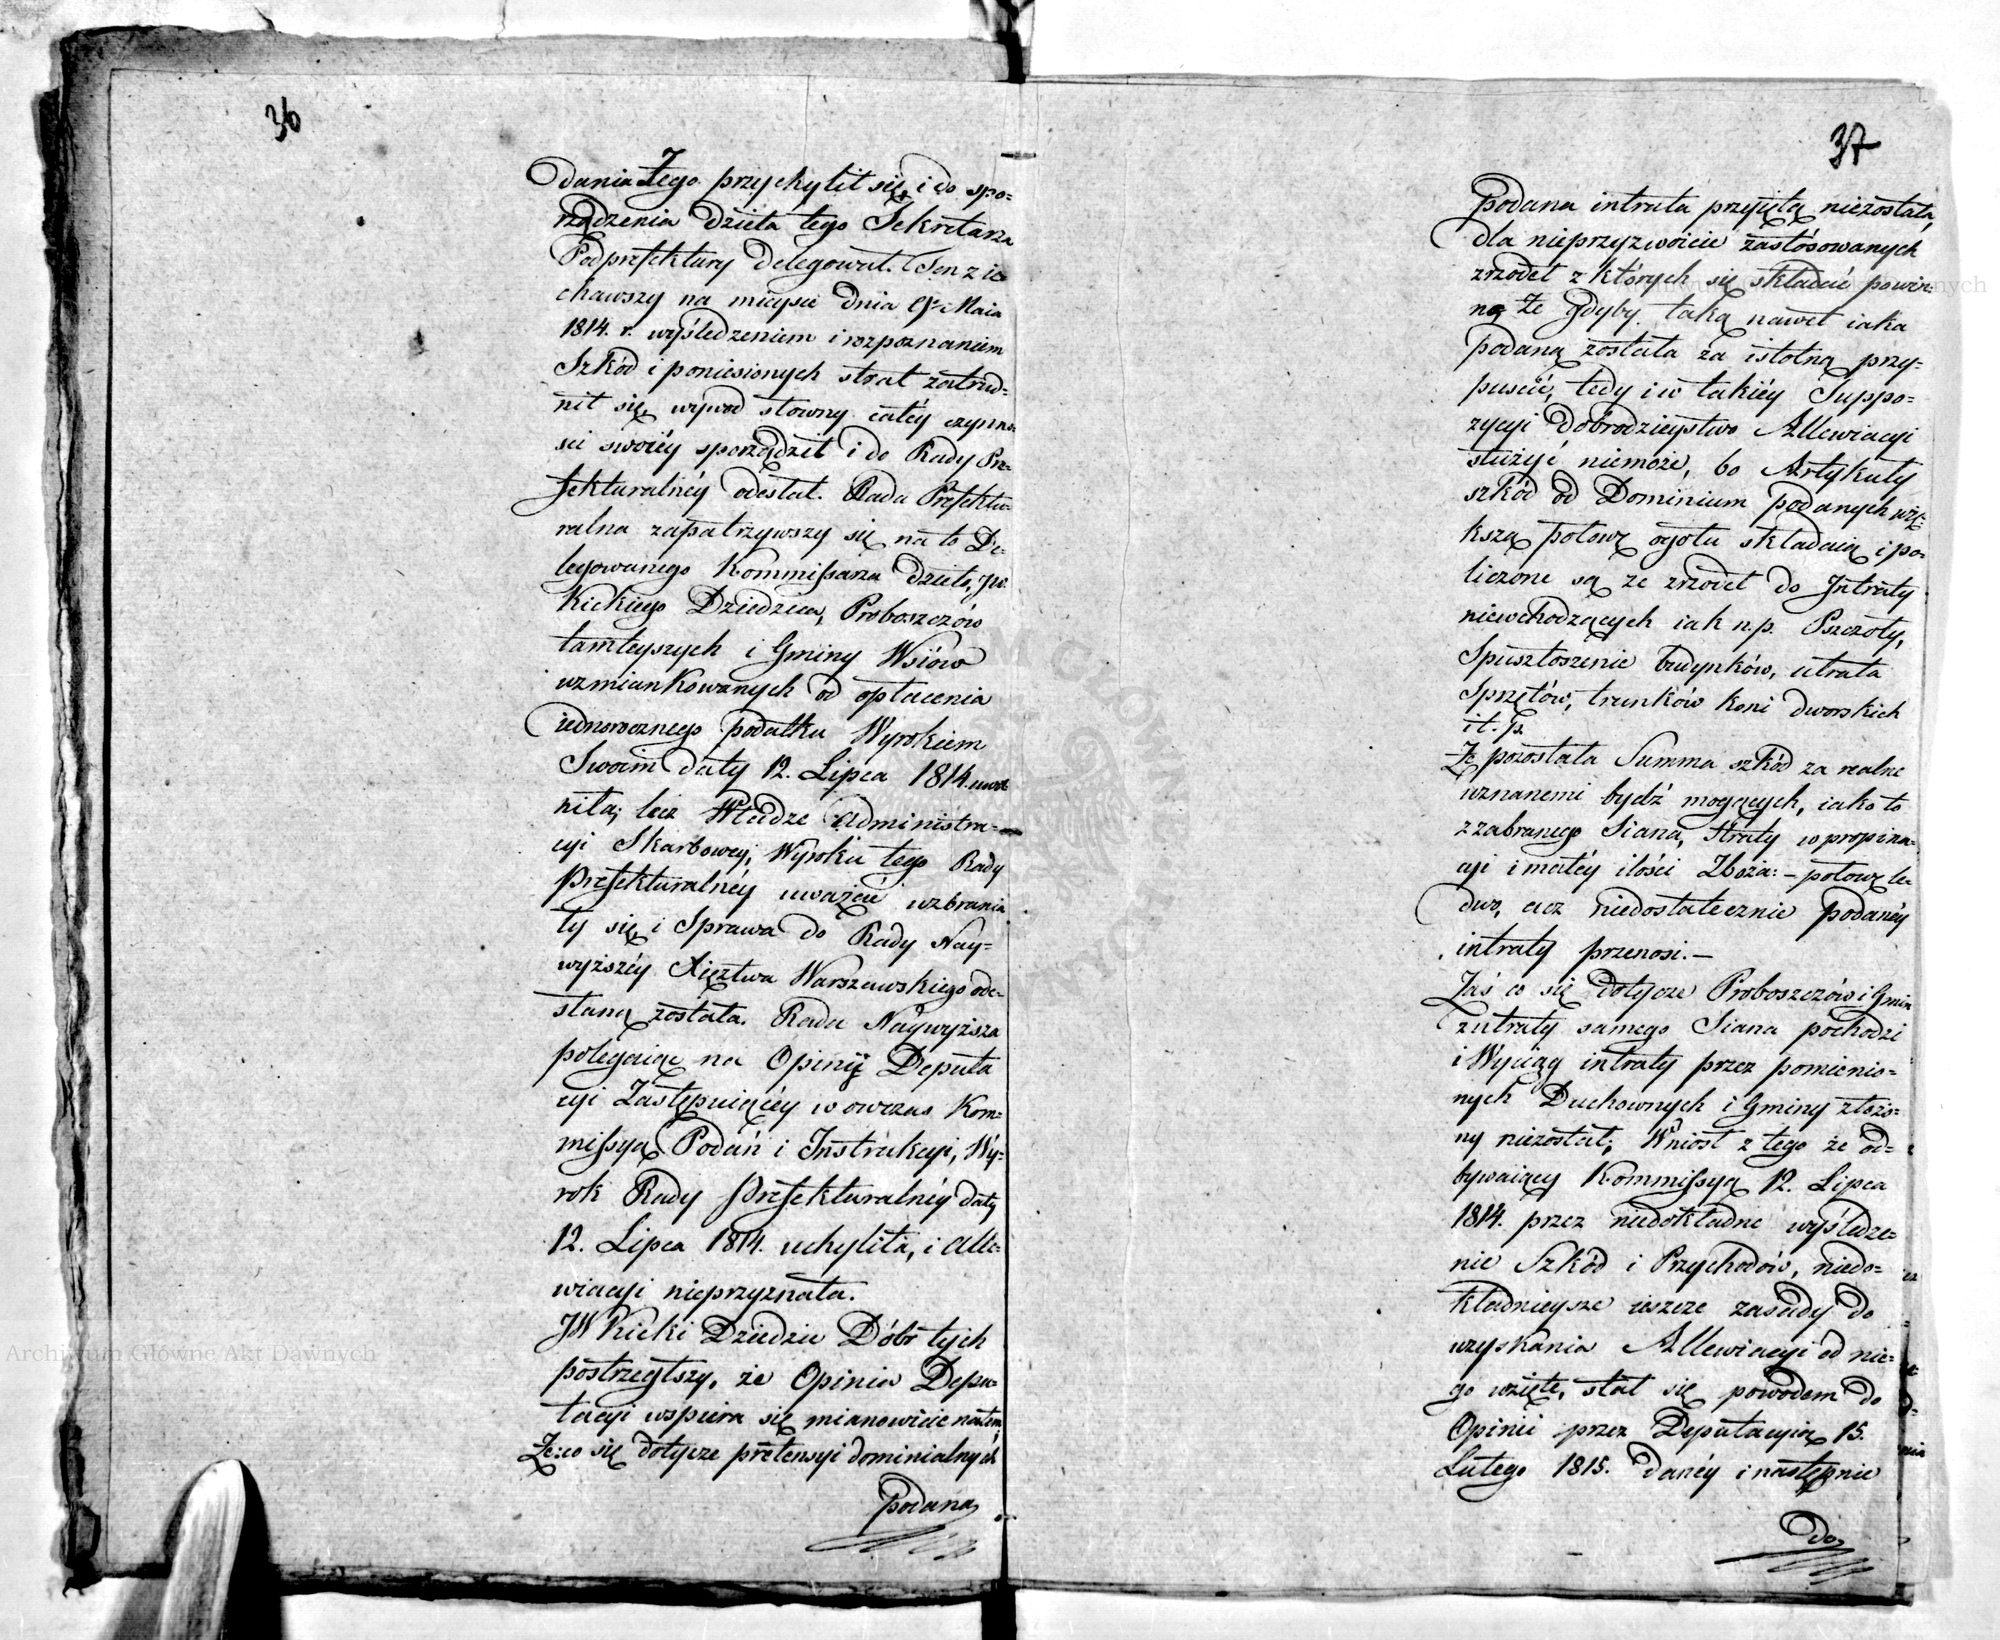 36
dania Tego przychylił się, i do spo-
rządzenia dzieła tego Sekretarza
Podprefektury delegował. Ten zie-
chawszy na mieysce dnia 9. Maia
1814. r. wyśledzeniem i rozpoznaniem
Szkód i poniesionych strat zatrud-
nił się, wywod słowny całéy czynno-
ści swoiéy sporządził i do Rady Pre-
fekturalnéy odesłał. Rada Prefektu-
ralna zapatrzywszy się na to De-
legowanego Kommissarza dzieło, JW.
Kickiego Dziedzica, Proboszczów
tamteyszych i Gminy Wsiów
wzmiankowanych od opłacenia
iednorocznego podatku Wyrokiem
Swoim daty 12. Lipca 1814. uwol-
niła; lecz Władze Administra-
cyi Skarbowey, Wyroku tego Rady
Prefekturalnéy uważać wzbrania-
ły się, i Sprawa do Rady Nay-
wyższéy Xięztwa Warszawskiego ode-
słaną została. Rada Naywyższa
polegaiąc na Opinij Deputa
cyi Zastępuiącéy wowczas Kom-
missyą Podań i Instrukcyi, Wy-
rok Rady Prefekturalnéy daty
12. Lipca 1814. uchyliła, i Alle-
wiacyi nieprzyznała.
JW Kicki Dziedzic Dóbr tych
postrzegłszy, że Opinia Depu-
tacyi wspiera się mianowicie natem,
Że: co się dotycze pretensyi dominialnych
podana
37
Podana intrata przyiętą niezostała,
dla nieprzyzwoicie zastósowanych
zrzodeł z których się składać powin-
na, Że gdyby taką nawet iaka
podaną została za istotną przy-
puscić, tedy i w takiéy Suppo-
zycyi Dobrodzieystwo Allewiacyi
służyć niemoże, bo Artykuły
szkód od Dominium podanych wię-
kszą połowę ogołu składaią i po-
liczone są ze zrzodeł do Intraty
niewchodzących iak n.p. Pszczoły,
Spustoszenie budynków, utrata
Sprzętów, trunków koni dworskich
i t. p.
Że pozostała Summa szkód za realne
uznanemi bydź mogących, iako to
z zabranego Siana, straty w propina-
cyi i małéy ilości Zboża: – połowę le-
dwo, acz niedostatecznie podanéy
intraty przenosi. –
Zaś co się dotycze Proboszczów i Gmin
z utraty samego Siana pochodzi
i Wyciąg intraty przez pomienio-
nych Duchownych i Gminy złożo-
ny niezostał; Wniosł z tego że od-
bywaiący Kommissyą 12. Lipca
1814. przez niedokładne wyśledze-
nie Szkód i Przychodów, niedo-
kładnieysze ieszcze zasady do
uzyskania Allewiacyi od nie-
go wzięte, stał się powodem do
Opinii przez Deputacyią 15.
Lutego 1815. danéy i następnie
do
Archiwum Główne Akt Dawnych